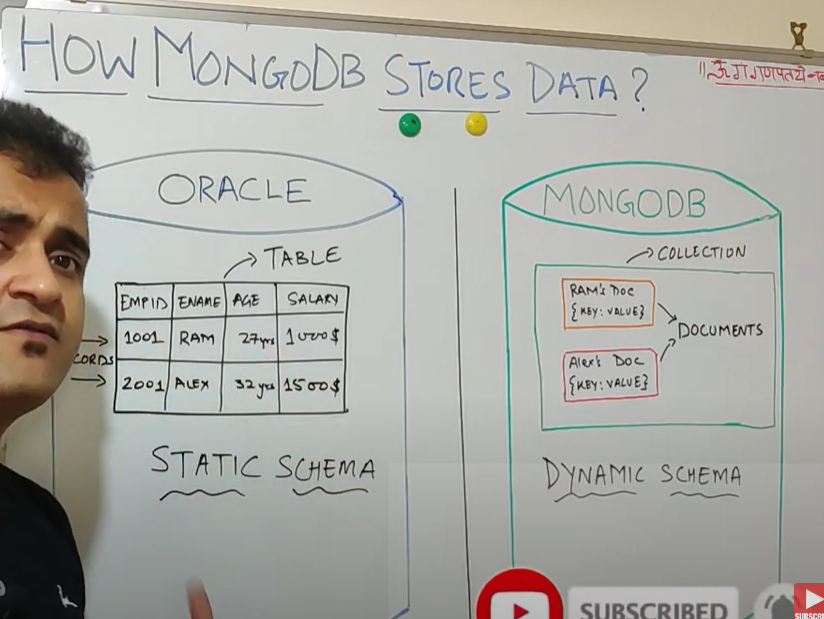 HOW MONGODB STORES DATA?
ORACLE
TABLE
EMPID ENAME AGE SALARY
1001 RAM 27yrs 1000$
CORDS
2001 ALEX 32yrs 1500$
STATIC SCHEMA
MONGODB
COLLECTION
RAM's DOC
{KEY: VALUE}
DOCUMENTS
Alex's DOC
{KEY: VALUE}
DYNAMIC SCHEMA
SUBSCRIBED